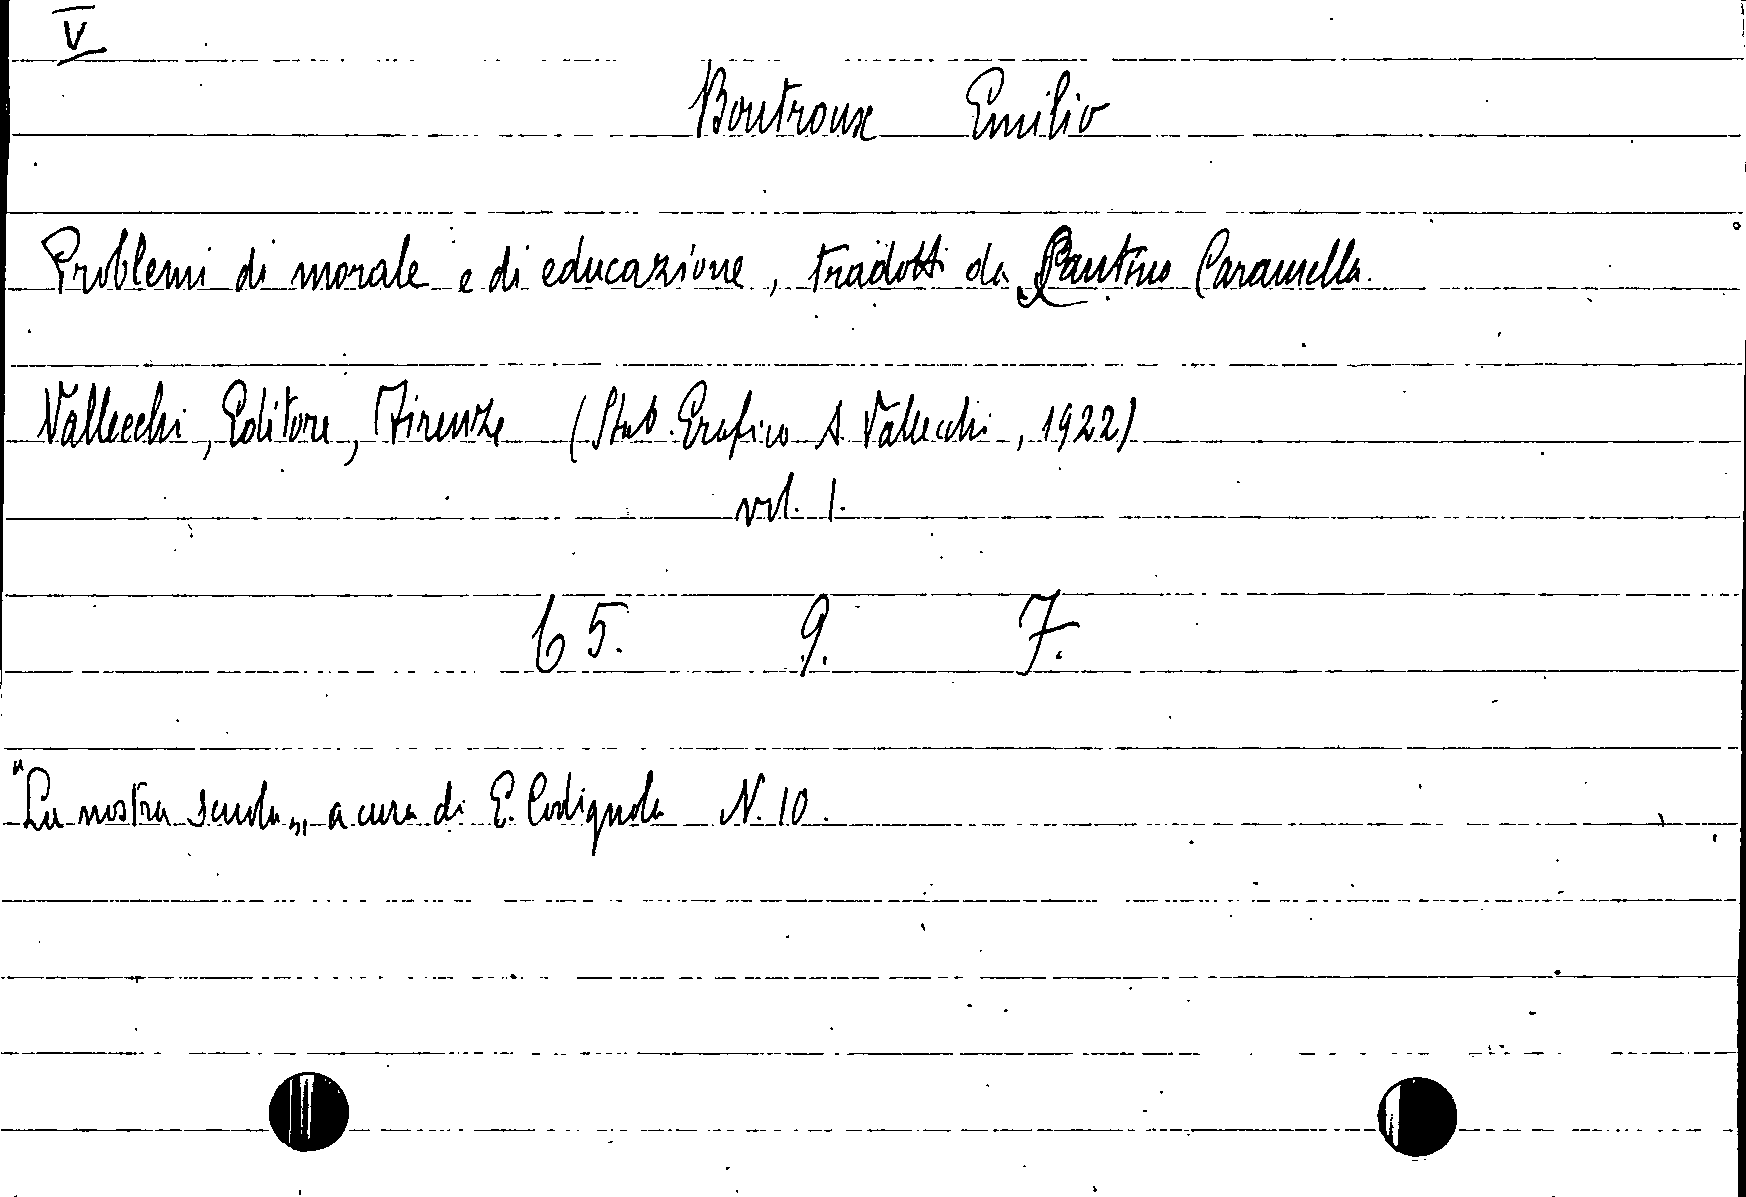 V
Boutroux Emilio
Problemi di morale e di educazione, tradotti da Santino Caramella.
Vallecchi, Editore, Firenze (Stab. Grafico A. Vallecchi, 1922)
vol. 1.
65. 9. 7.
"La nostra scuola„, a cura di E. Codignola N. 10.